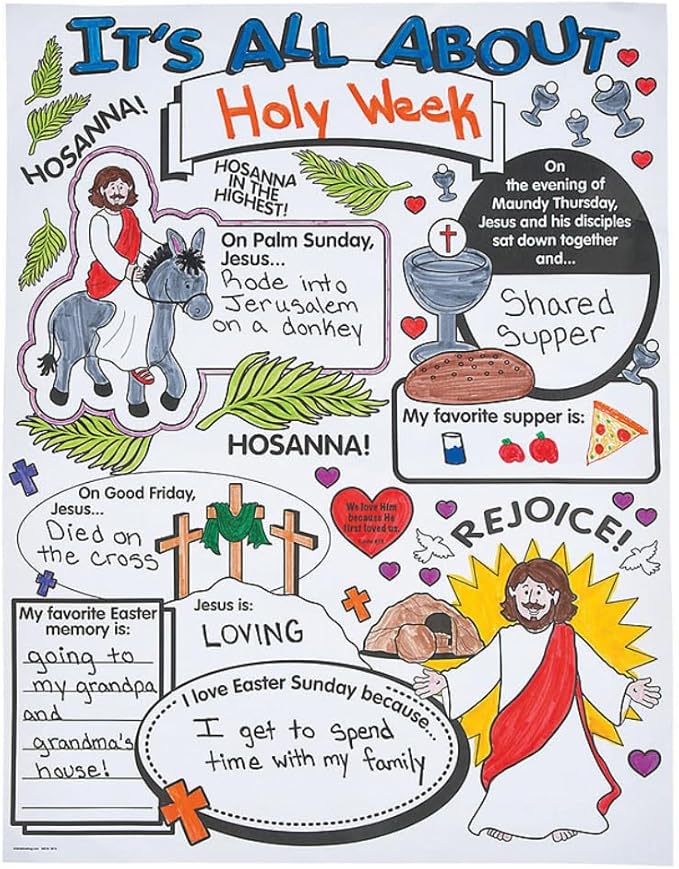 IT'S ALL ABOUT
Holy Week
HOSANNA!
HOSANNA
IN THE
HIGHEST!
On Palm Sunday,
Jesus...
Rode into
Jerusalem
on a donkey
On
the evening of
Maundy Thursday,
Jesus and his disciples
sat down together
and...
Shared
Supper
My favorite supper is:
HOSANNA!
On Good Friday,
Jesus...
Died on
the cross
We love Him
because He
first loved us.
REJOICE!
My favorite Easter
memory is:
going to
my grandpa
and
grandma's
house!
Jesus is:
LOVING
I love Easter Sunday because...
I get to spend
time with my family